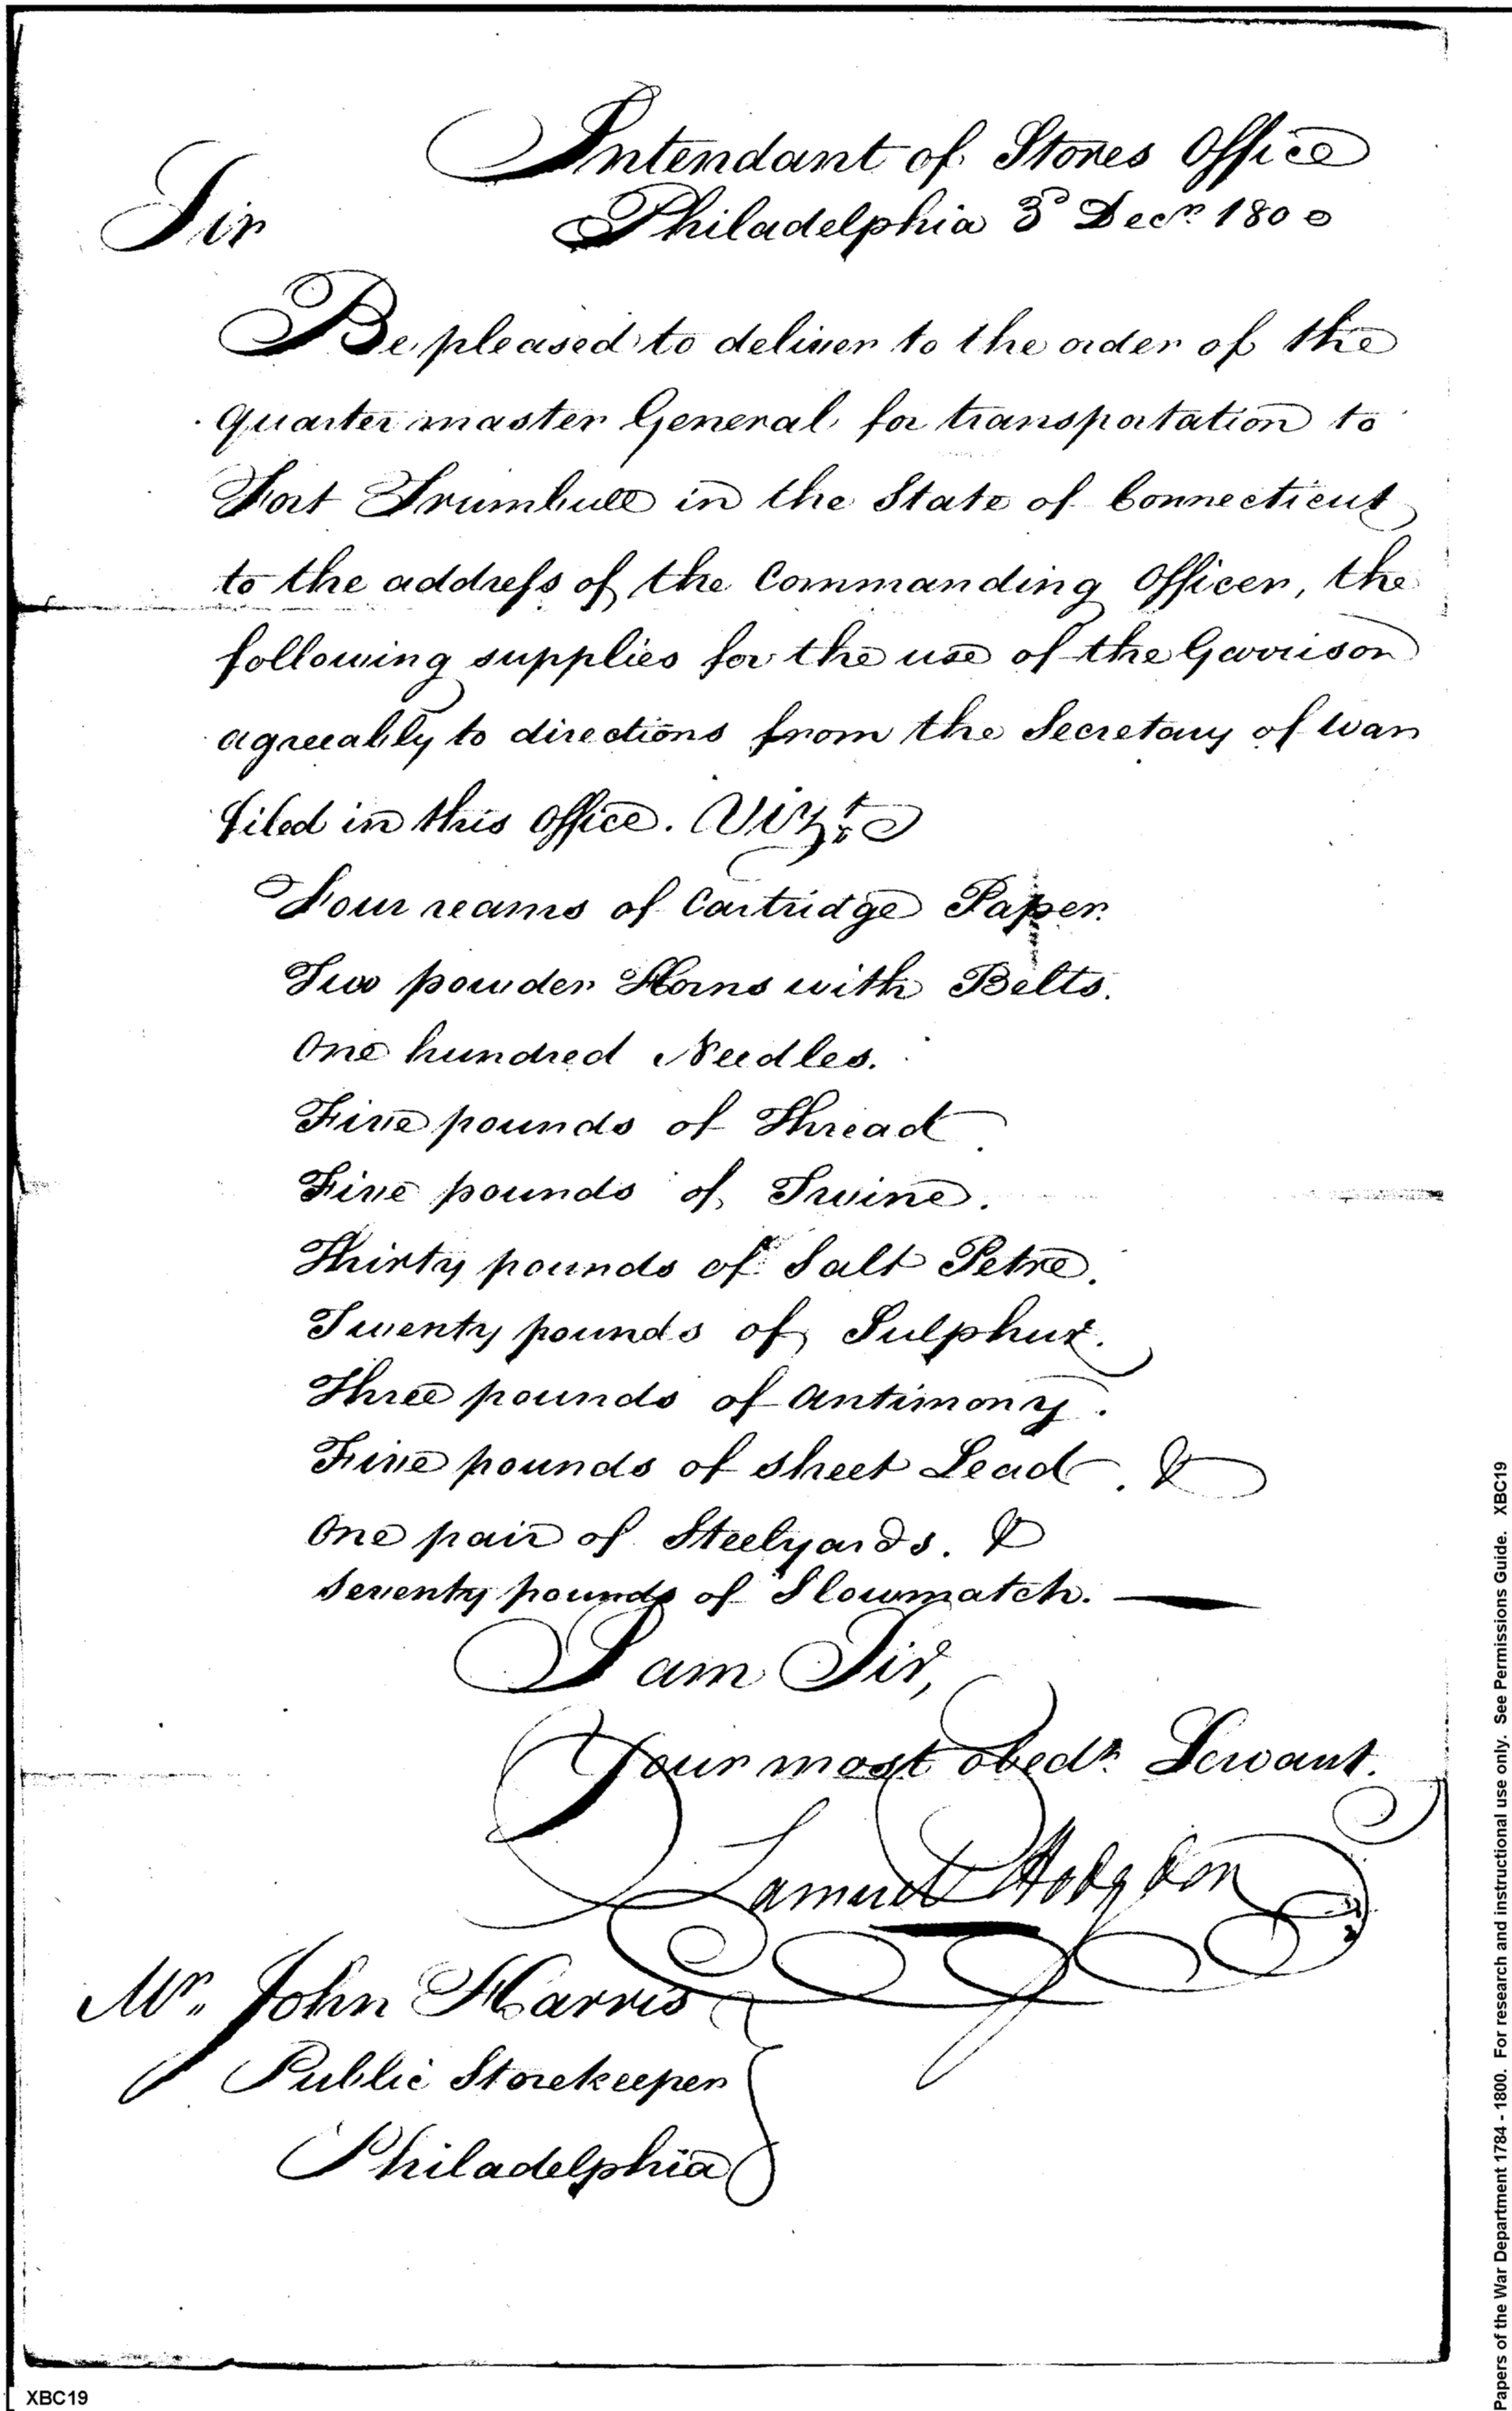 Intendant of Stores Office
Sir
Philadelphia 3d Decr. 1800
Be pleased to deliver to the order of the
quarter master General for transportation to
Fort Trumbull in the State of Connecticut
to the address of the Commanding Officer, the
following supplies for the use of the Garrison
agreeably to directions from the Secretary of War
filed in this Office. Vizt.
Four reams of Cartridge Paper.
Two powder Horns with Belts.
One hundred Needles.
Five pounds of Thread.
Five pounds of Twine.
Thirty pounds of Salt Petre.
Twenty pounds of Sulphur.
Three pounds of Antimony.
Five pounds of sheet Lead. &
One pair of Steelyards. &
Seventy pounds of Slowmatch.
I am Sir,
Your most obedt. Servant.
Samuel Hodgdon
Mr. John Harris
Public Storekeeper
Philadelphia
XBC19
Papers of the War Department 1784 - 1800. For research and instructional use only. See Permissions Guide. XBC19